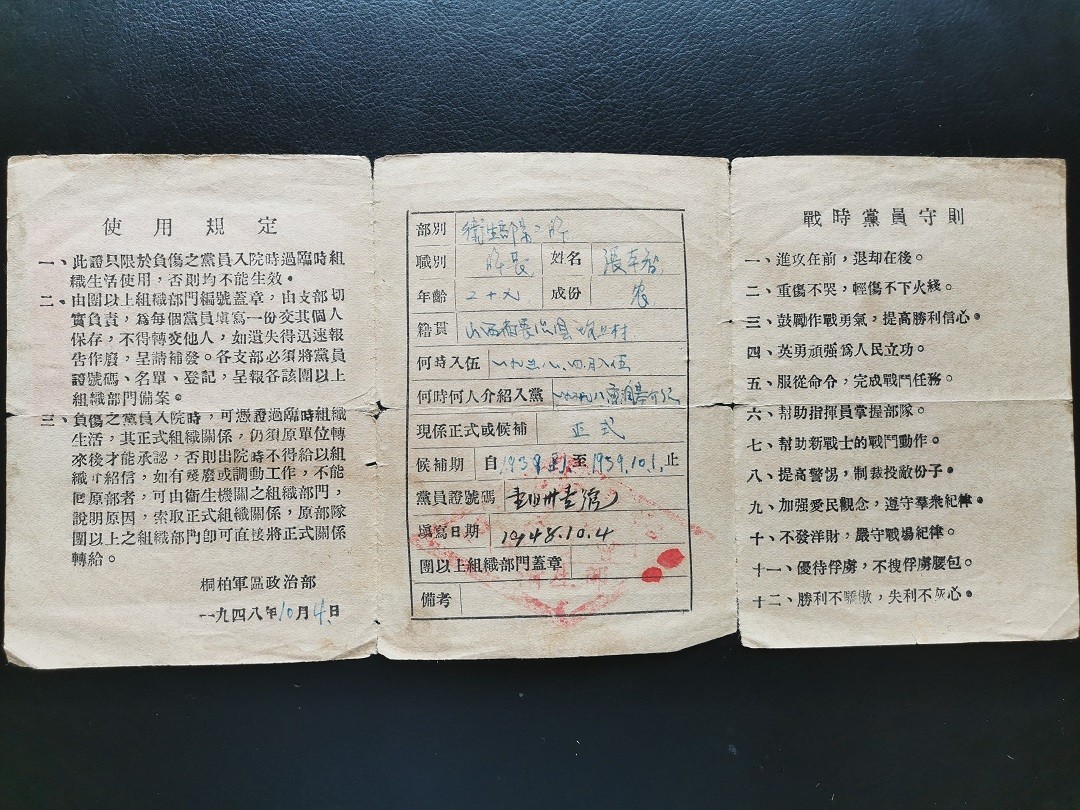 使用規定
一、此證只限於負傷之黨員入院時過臨時組
織生活使用，否則均不能生效。
二、由團以上組織部門編號蓋章，由支部切
實負責，為每個黨員填寫一份交其個人
保存，不得轉交他人，如遺失得迅速報
告作廢，呈請補發。各支部必須將黨員
證號碼、名單、登記，呈報各該團以上
組織部門備案。
三、負傷之黨員入院時，可憑證過臨時組織
生活，其正式組織關係，仍須原單位轉
來後才能承認，否則出院時不得給以組
織介紹信，如有殘廢或調動工作，不能
回原部者，可由衛生機關之組織部門，
說明原因，索取正式組織關係，原部隊
團以上之組織部門卽可直接將正式關係
轉給。
桐柏軍區政治部
一九四八年10月4日
部別 衛生部第二所
職別 所長 姓名 張
年齡 二十 成份 农
籍貫 山西省 县 村
何時入伍 一九三八.四月入伍
何時何人介紹入黨 介紹
現係正式或候補 正式
候補期 自 至1939.10.1.止
黨員證號碼
填寫日期 1948.10.4
團以上組織部門蓋章
備考
戰時黨員守則
一、進攻在前，退却在後。
二、重傷不哭，輕傷不下火綫。
三、鼓勵作戰勇氣，提高勝利信心。
四、英勇頑強爲人民立功。
五、服從命令，完成戰鬥任務。
六、帮助指揮員掌握部隊。
七、帮助新戰士的戰鬥動作。
八、提高警惕，制裁投敵份子。
九、加强愛民觀念，遵守羣衆紀律。
十、不發洋財，嚴守戰場紀律。
十一、優待俘虜，不搜俘虜腰包。
十二、勝利不驕傲，失利不灰心。